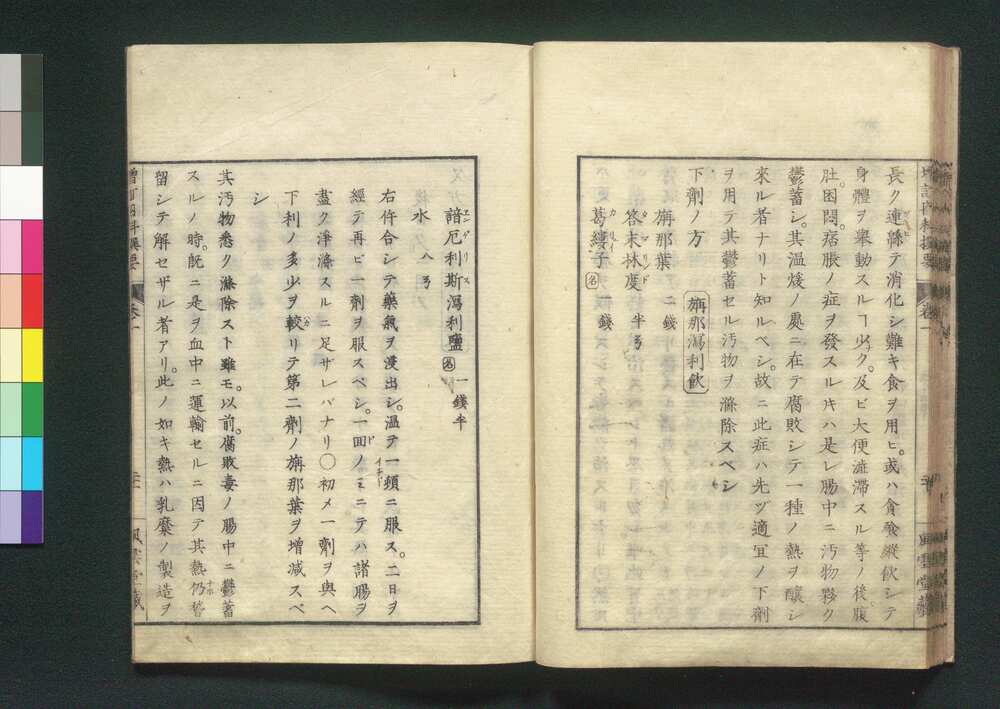 長ク連緜テ消化シ難キ食ヲ用ヒ。或ハ貪飧縱飲シテ
身體ヲ擧動スルヿ少ク。及ビ大便澁滯スル等ノ後腹
肚困悶。痞脹ノ症ヲ發スルキハ是レ腸中ニ汚物夥ク
鬱蓄シ。其温煖ノ處ニ在テ腐敗シテ一種ノ熱ヲ釀シ
來ル者ナリト知ルベシ。故ニ此症ハ先ヅ適宜ノ下劑
ヲ用テ其鬱蓄セル汚物ヲ滌除スベシ
下劑ノ方 旃那瀉利飲
旃那葉 二錢
答末林度 半ゟ
葛縷子 名 錢
諳厄利斯瀉利鹽 名 一錢半
水 八ゟ
右件合シテ藥氣ヲ浸出シ。温テ一頓ニ服ス。二日ヲ
經テ再ビ一劑ヲ服スベシ。一回ノミニテハ諸腸ヲ
盡ク淨滌スルニ足ザレバナリ〇初メ一劑ヲ與ヘ
下利ノ多少ヲ較リテ第二劑ノ旃那葉ヲ增减スベ
シ
其汚物悉ク滌除スト雖モ。以前。腐敗毒ノ腸中ニ鬱蓄
スルノ時。旣ニ是ヲ血中ニ運輸セルニ因テ其熱仍些
留シテ解セザル者アリ。此ノ如キ熱ハ乳糜ノ製造ヲ
增訂內科撰要 卷一
風雲堂藏